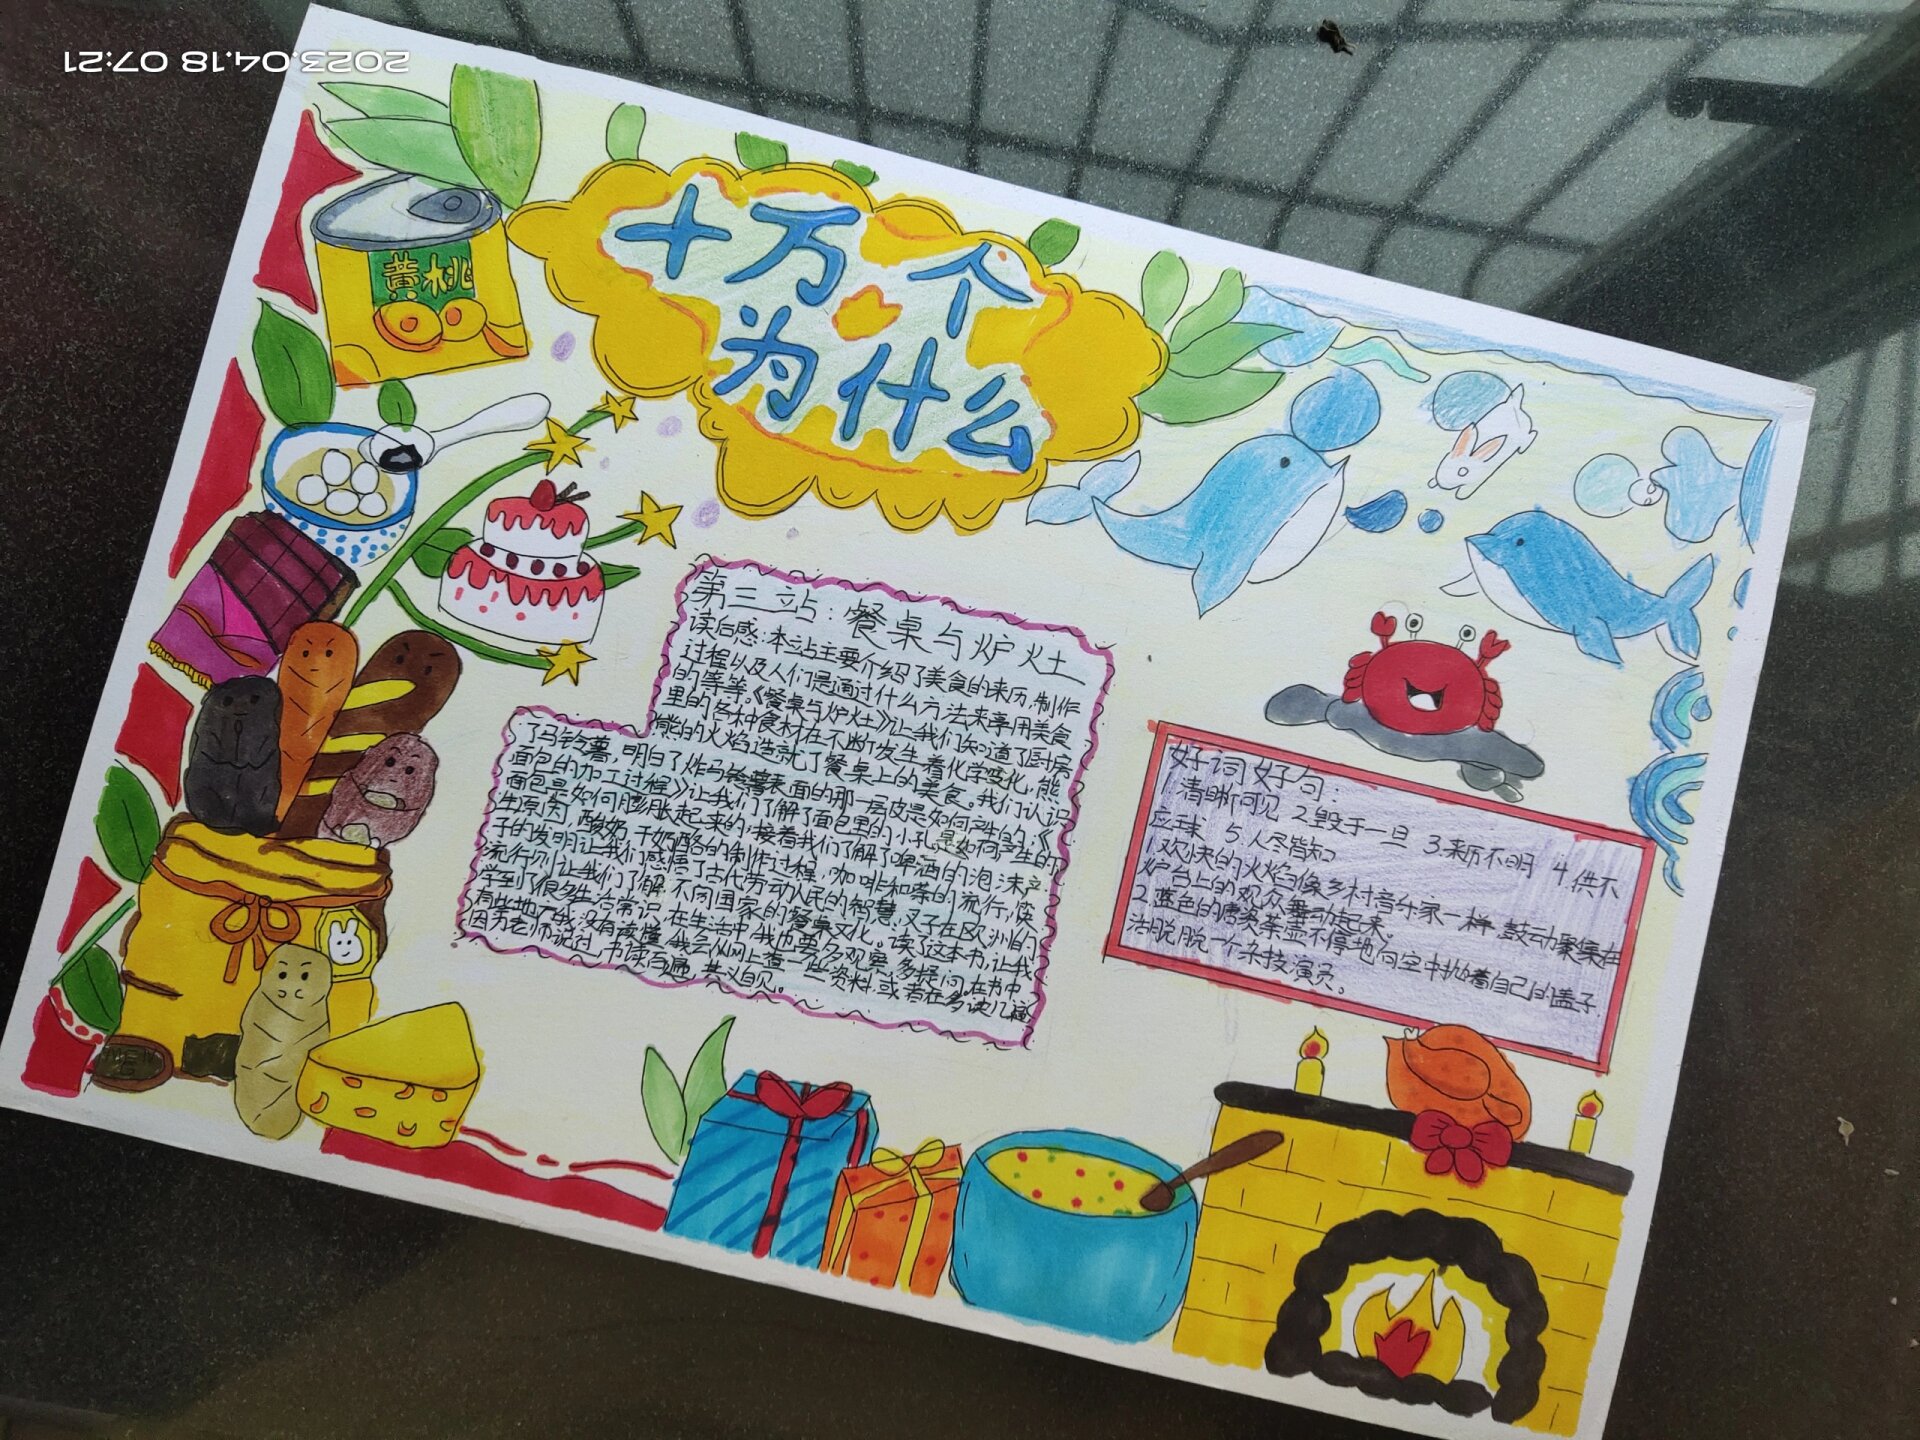 2023.04.18 07:21
十万个
为什么
黄桃
第三站：餐桌与炉灶
读后感：本站主要介绍了美食的来历,制作
过程以及人们是通过什么方法来享用美食
的等等。《餐桌与炉灶》让我们知道了厨房
里的各种食材在不断发生着化学变化,熊
熊的火焰造就了餐桌上的美食。我们认识
了马铃薯,明白了炸马铃薯表面的那一层皮是如何产生的,《
面包的加工过程》让我们了解了面包里的小孔是如何产生的
面包是如何膨胀起来的,接着我们了解了啤酒的泡沫产
生原因,酸奶、干奶酪的制作过程,咖啡和茶的流行,筷
子的发明让我们感悟了古代劳动人民的智慧,叉子在欧洲的
流行则让我们了解不同国家的餐桌文化。读了这本书,让我
学到了很多生活常识,在生活中,我也要多观察,多提问。在书中
有些地方我没有读懂,我会从网上查一些资料,或者在多读几遍
因为老师说过,书读百遍,其义自见。
好词好句：
1 清晰可见 2.毁于一旦 3.来历不明 4.供不
应求 5 人尽皆知
1.欢快的火焰像乡村音乐家一样 鼓动聚集在
炉台上的观众舞动起来。
2.蓝色的搪瓷茶壶不停地向空中抛着自己的盖子,
活脱脱一个杂技演员。